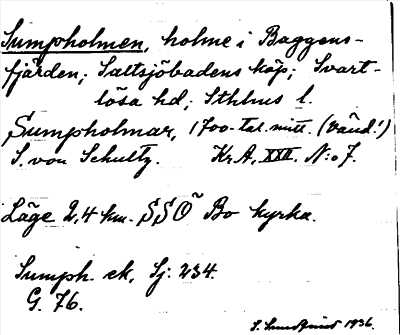 Sumpholmen, holme i Baggens-
fjärden; Saltsjöbadens köp; Svart-
lösa hd; Sthlms l.
Sumpholmar, 1700-tal. mitt. (Vänd!)
S. von Schultz. Kr. A. XXII. N:o 7.
Läge 2,4 km. SSO Bo kyrka.
Sumph. ek, Sj: 234.
G. 76.
S. Lundqvist 1936.